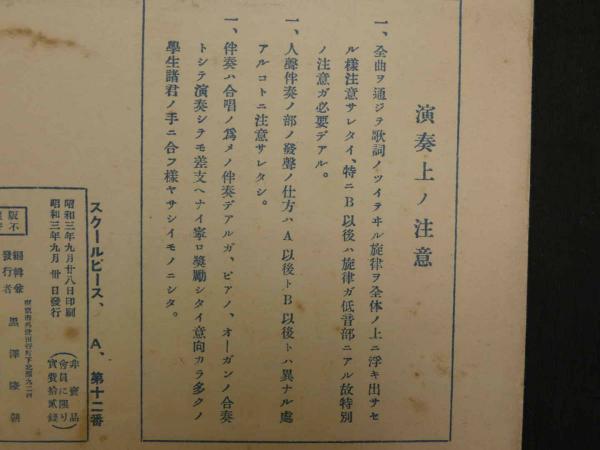 演奏上ノ注意
一、全曲ヲ通ジテ歌詞ノツイテヰル旋律ヲ全体ノ上ニ浮キ出サセ
ル樣注意サレタイ、特ニB以後ハ旋律ガ低音部ニアル故特別
ノ注意ガ必要デアル。
一、人聲伴奏ノ部ノ發聲ノ仕方ハA以後トB以後トハ異ナル處
アルコトニ注意サレタシ。
一、伴奏ハ合唱ノ爲メノ伴奏デアルガ、ピアノ、オーガンノ合奏
トシテ演奏シテモ差支ヘナイ寧ロ獎勵シタイ意向カラ多クノ
學生諸君ノ手ニ合フ樣ヤサシイモノニシタ。
スクールピース、 A、第十二番
昭和三年九月廿八日印刷
昭和三年九月 卅日發行
(非賣品
會員に限り
實費拾貳錢)
編輯兼
發行者 黒澤隆朝
版不